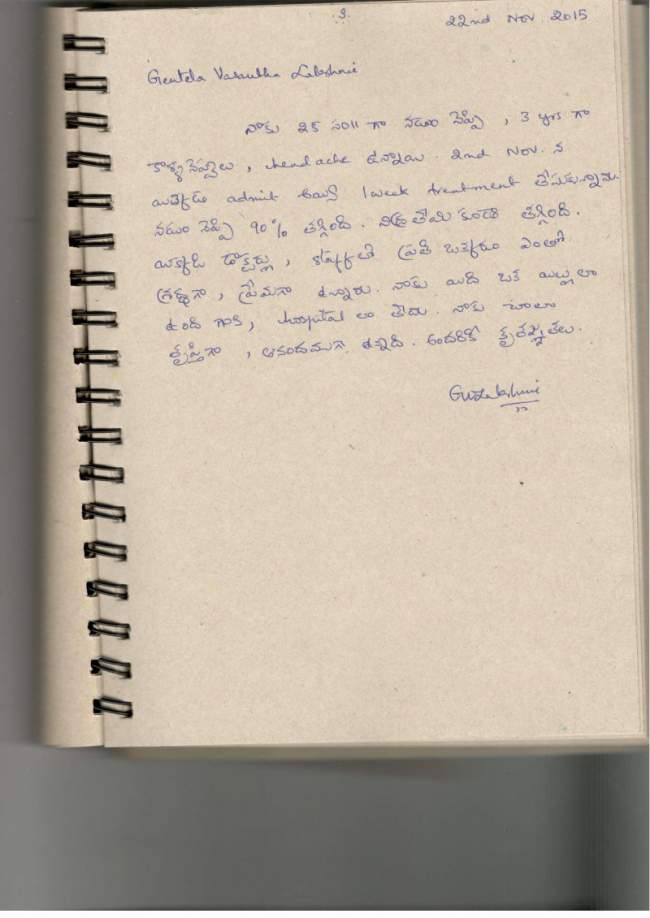 3.
22nd Nov. 2015
Gentela Vasantha Lakshmi
నాకు 25 సం॥ గా నడుం నొప్పి, 3 yrs గా
కాళ్ళనొప్పులు, headache ఉన్నాయి. 2nd Nov. న
యిక్కడ admit అయ్యి 1week treatment తీసుకున్నాను.
నడుం నొప్పి 90% తగ్గింది. నిద్రలేమి కుండా తగ్గింది.
యిక్కడి డాక్టర్లు, staffలో ప్రతి ఒక్కరూ ఎంతో
శ్రద్ధగా, ప్రేమగా ఉన్నారు. నాకు యిది ఒక యిల్లులా
ఉంది గాని, hospital లా లేదు. నాకు చాలా
తృప్తిగా, ఆనందముగా ఉన్నది. అందరికీ కృతజ్ఞతలు.
GVLakshmi